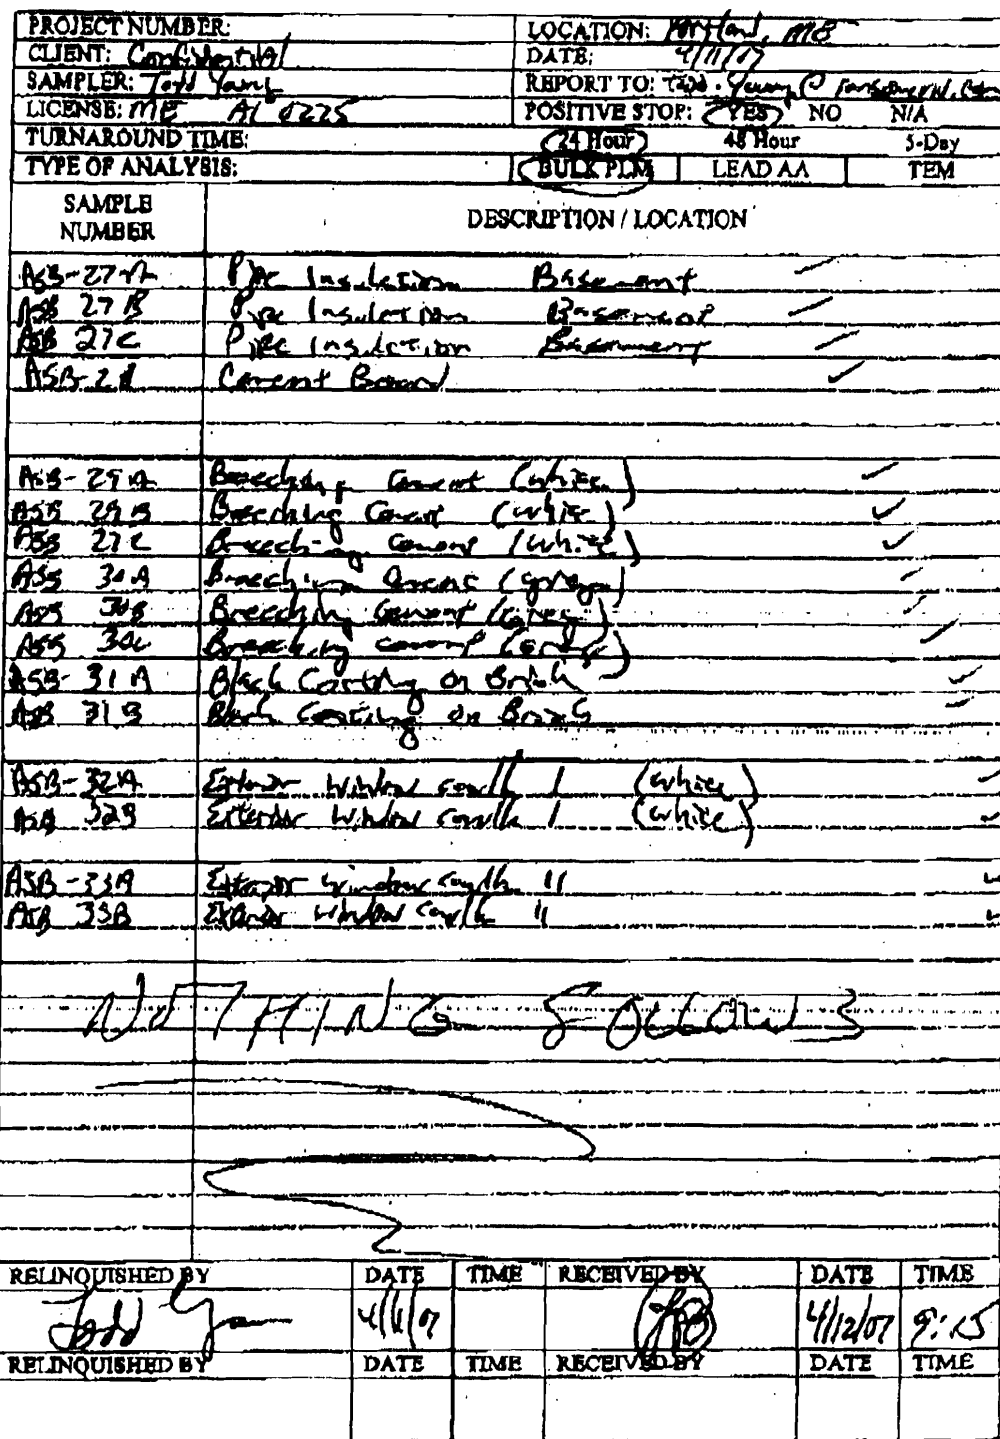 PROJECT NUMBER: LOCATION: Portland, ME
CLIENT: Confidential DATE: 4/11/07
SAMPLER: Todd Young REPORT TO: Todd.Young@
LICENSE: ME AI 0225 POSITIVE STOP: YES NO N/A
TURNAROUND TIME: 24 Hour 48 Hour 5-Day
TYPE OF ANALYSIS: BULK PLM LEAD AA TEM
SAMPLE NUMBER DESCRIPTION / LOCATION
ASB-27A Pipe Insulation Basement
ASB 27B Pipe Insulation Basement
ASB 27C Pipe Insulation Basement
ASB-28 Cement Board
ASB-29A Breeching Cement (white)
ASB 29B Breeching Cement (white)
ASB 29C Breeching Cement (white)
ASB 30A Breeching Cement (grey)
ASB 30B Breeching Cement (Grey)
ASB 30C Breeching Cement (Grey)
ASB-31A Black Coating on Brick
ASB 31B Black Coating on Brick
ASB-32A Exterior Window Caulk I (white)
ASB 32B Exterior Window Caulk I (white)
ASB-33A Exterior Window Caulk II
ASB 33B Exterior Window Caulk II
NOTHING FOLLOWS
RELINQUISHED BY DATE TIME RECEIVED BY DATE TIME
Todd Young 4/11/07 4/12/07 9:15
RELINQUISHED BY DATE TIME RECEIVED BY DATE TIME